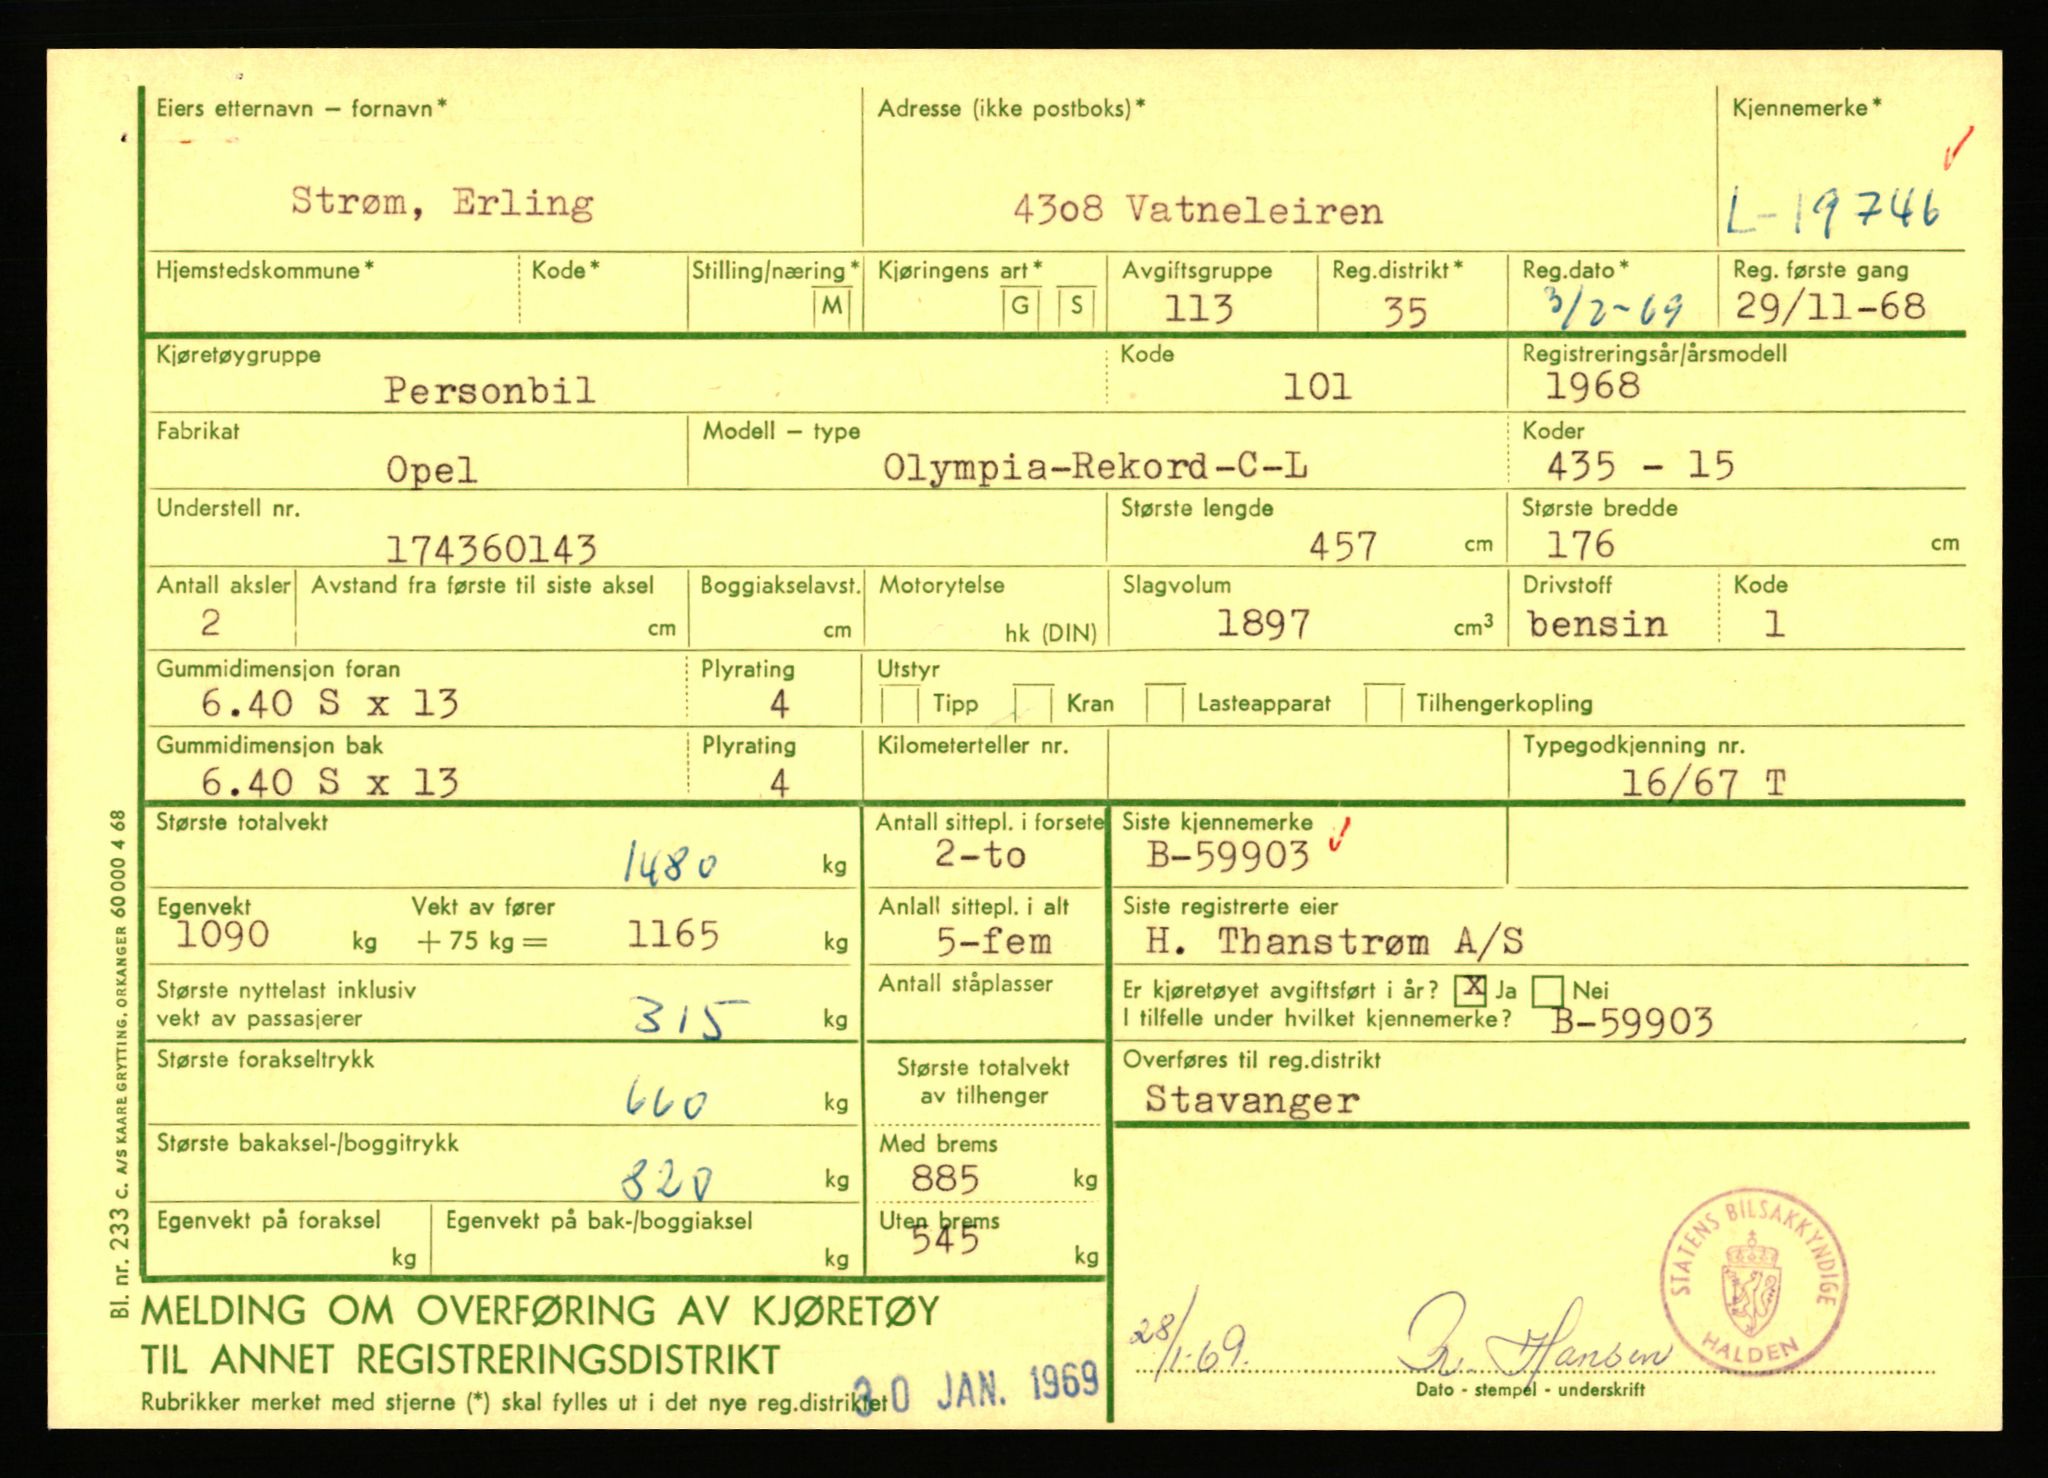 Eiers etternavn – fornavn*
Strøm, Erling
Adresse (ikke postboks)*
4308 Vatneleiren
Kjennemerke*
L-19746
Hjemstedskommune*
Kode*
Stilling/næring*
M
Kjøringens art*
G S
Avgiftsgruppe
113
Reg.distrikt*
35
Reg.dato*
3/2-69
Reg. første gang
29/11-68
Kjøretøygruppe
Personbil
Kode
101
Registreringsår/årsmodell
1968
Fabrikat
Opel
Modell – type
Olympia-Rekord-C-L
Koder
435 - 15
Understell nr.
174360143
Største lengde
457 cm
Største bredde
176 cm
Antall aksler
2
Avstand fra første til siste aksel
cm
Boggiakselavst.
cm
Motorytelse
hk (DIN)
Slagvolum
1897 cm³
Drivstoff
bensin
Kode
1
Gummidimensjon foran
6.40 S x 13
Plyrating
4
Utstyr
Tipp Kran Lasteapparat Tilhengerkopling
Gummidimensjon bak
6.40 S x 13
Plyrating
4
Kilometerteller nr.
Typegodkjenning nr.
16/67 T
Største totalvekt
1480 kg
Antall sittepl. i forsete
2-to
Siste kjennemerke
B-59903
Egenvekt
1090 kg
Vekt av fører
+ 75 kg = 1165 kg
Anlall sittepl. i alt
5-fem
Siste registrerte eier
H. Thanstrøm A/S
Største nyttelast inklusiv
vekt av passasjerer
315 kg
Antall ståplasser
Er kjøretøyet avgiftsført i år? X Ja Nei
I tilfelle under hvilket kjennemerke? B-59903
Største forakseltrykk
660 kg
Største totalvekt
av tilhenger
Overføres til reg.distrikt
Stavanger
Største bakaksel-/boggitrykk
820 kg
Med brems
885 kg
Egenvekt på foraksel
kg
Egenvekt på bak-/boggiaksel
kg
Uten brems
545 kg
MELDING OM OVERFØRING AV KJØRETØY
TIL ANNET REGISTRERINGSDISTRIKT
Rubrikker merket med stjerne (*) skal fylles ut i det nye reg.distriktet
30 JAN. 1969
28/1-69.
R. Hansen
Dato - stempel - underskrift
STATENS BILSAKKYNDIGE
HALDEN
Bl. nr. 233 C. A/S KAARE GRYTTING, ORKANGER 60 000 4 68